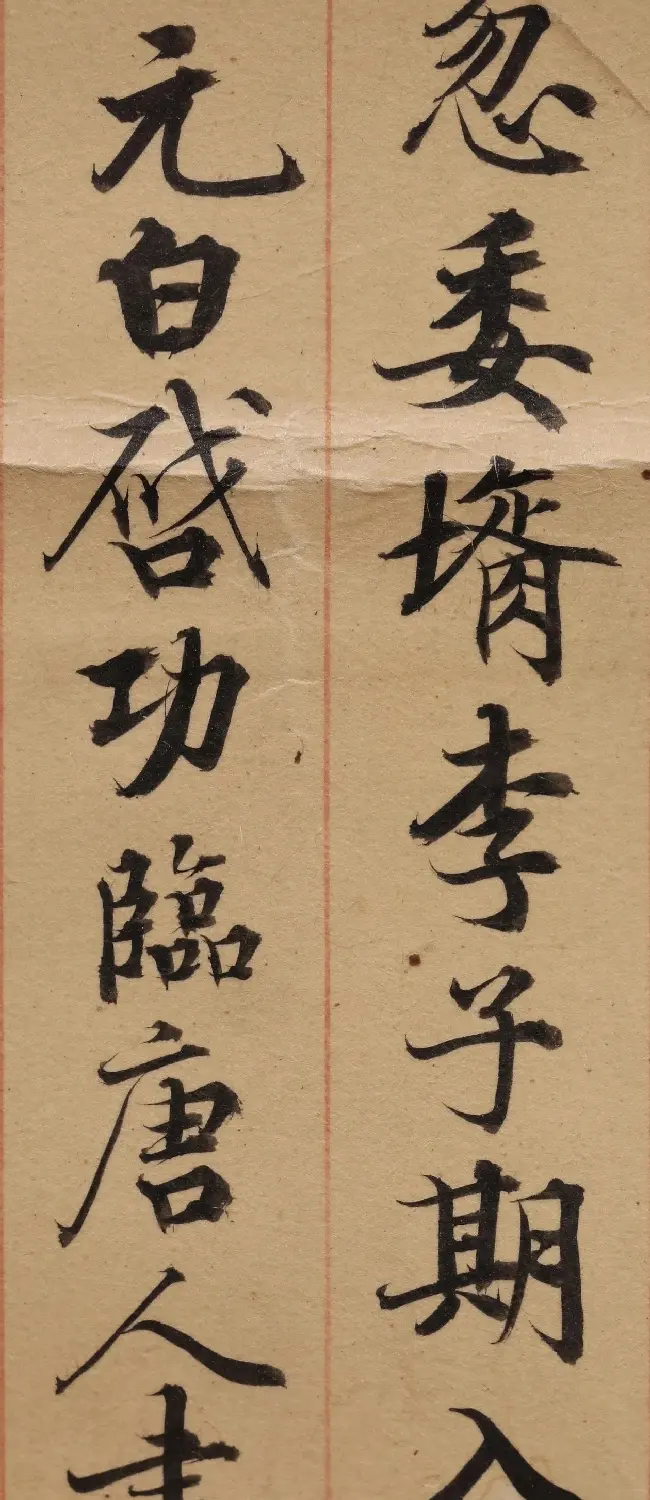 忽委墯李子期入
元白启功臨唐人書